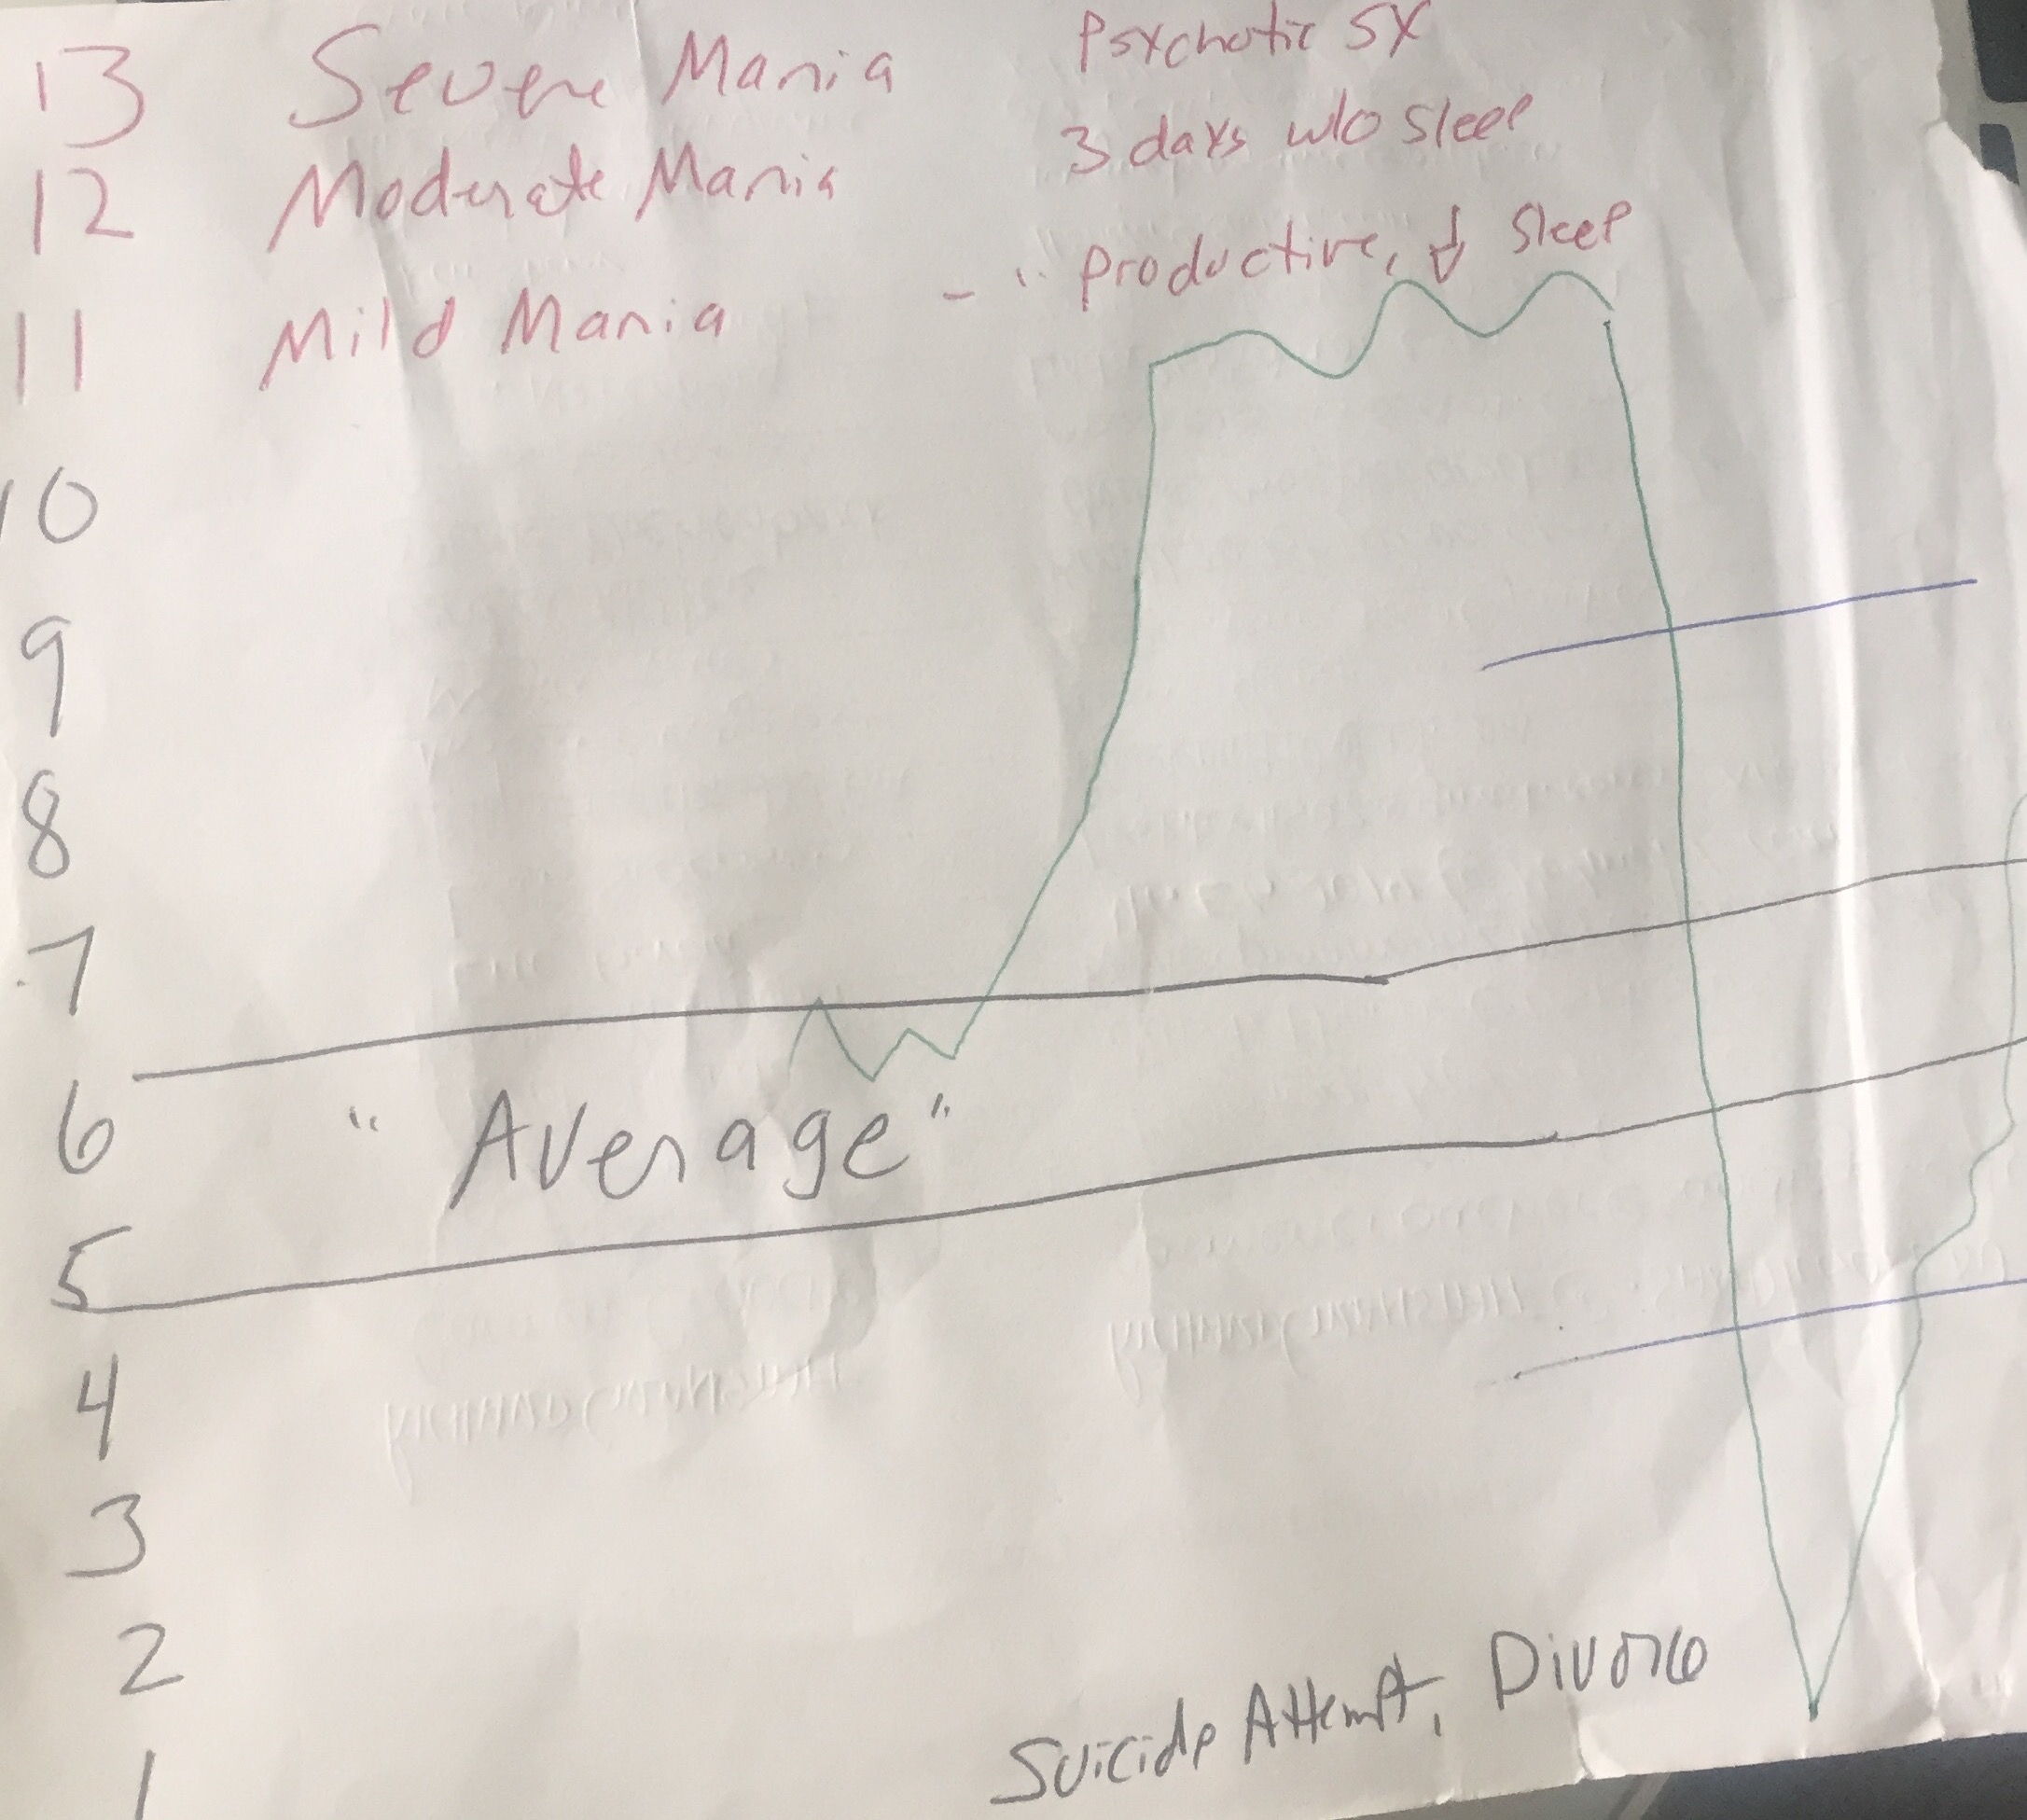 13 Severe Mania Psychotic SX
12 Moderate Mania 3 days w/o sleep
11 Mild Mania - " Productive, ↓ Sleep
10
9
8
7
6 "Average"
5
4
3
2
1 Suicide Attempt, Divorce